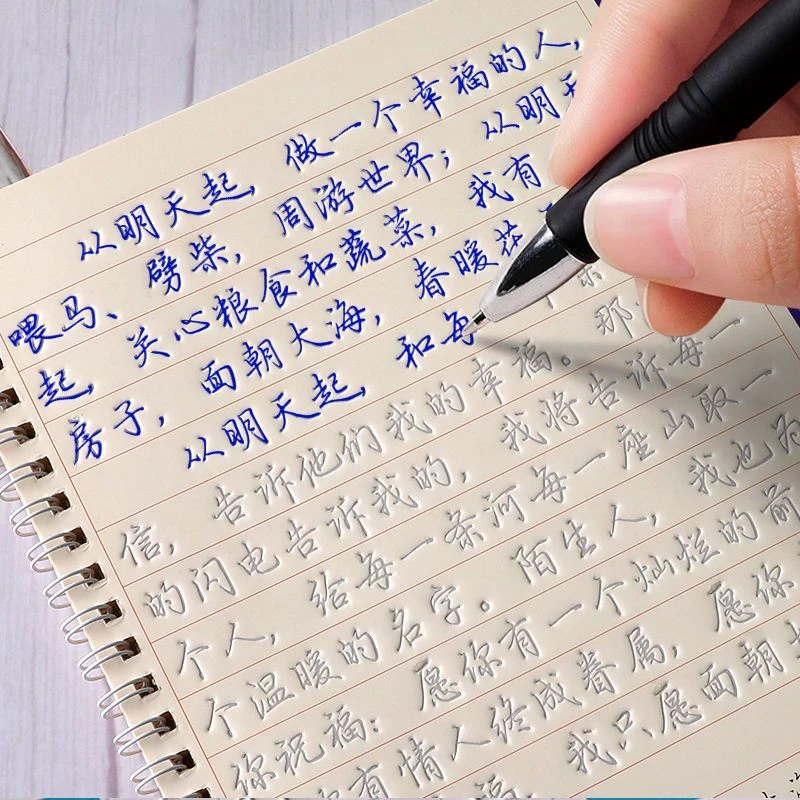 从明天起,做一个幸福的人,
喂马、劈柴,周游世界;从明天
起,关心粮食和蔬菜,我有
房子,面朝大海,春暖花
从明天起,和每
信,告诉他们我的幸福。那
的闪电告诉我的,我将告诉每一
个人,给每一条河每一座山取一
个温暖的名字。陌生人,我也为
你祝福:愿你有一个灿烂的前
你有情人终成眷属,愿你
福,我只愿面朝大